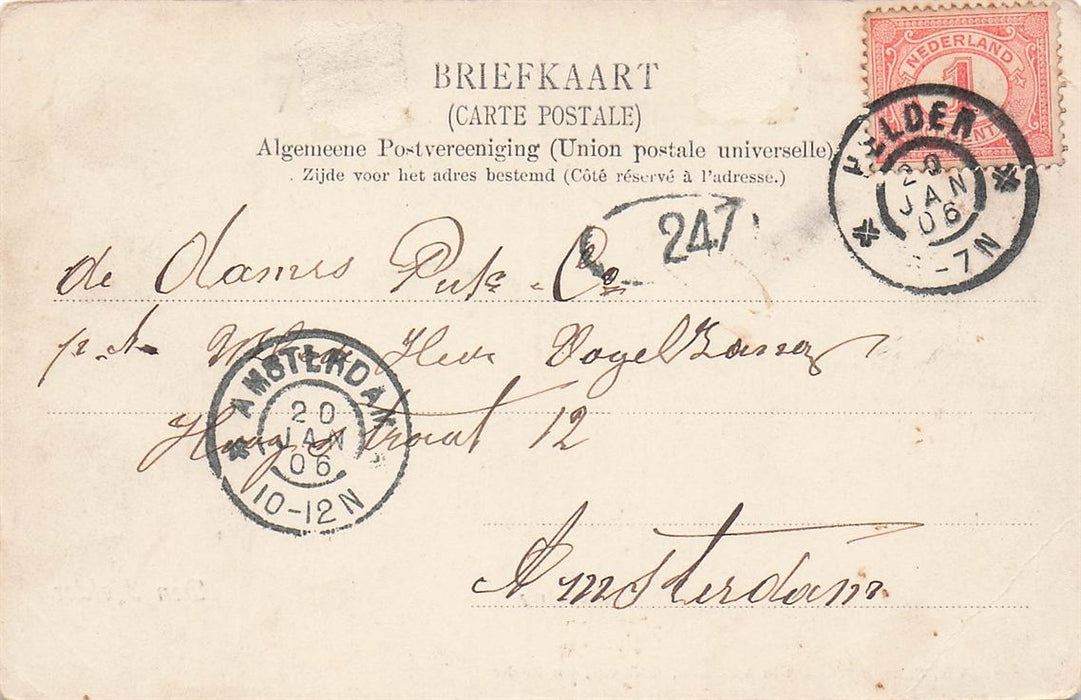 BRIEFKAART
(CARTE POSTALE)
Algemeene Postvereeniging (Union postale universelle)
Zijde voor het adres bestemd (Côté réservé à l'adresse.)
NEDERLAND
1
CENT
HELDER
20
JAN
06
-7N
247
de Dames Puk & Co
Heer Vogelzang
straat 12
Amsterdam
AMSTERDAM
20
JAN
06
10-12N